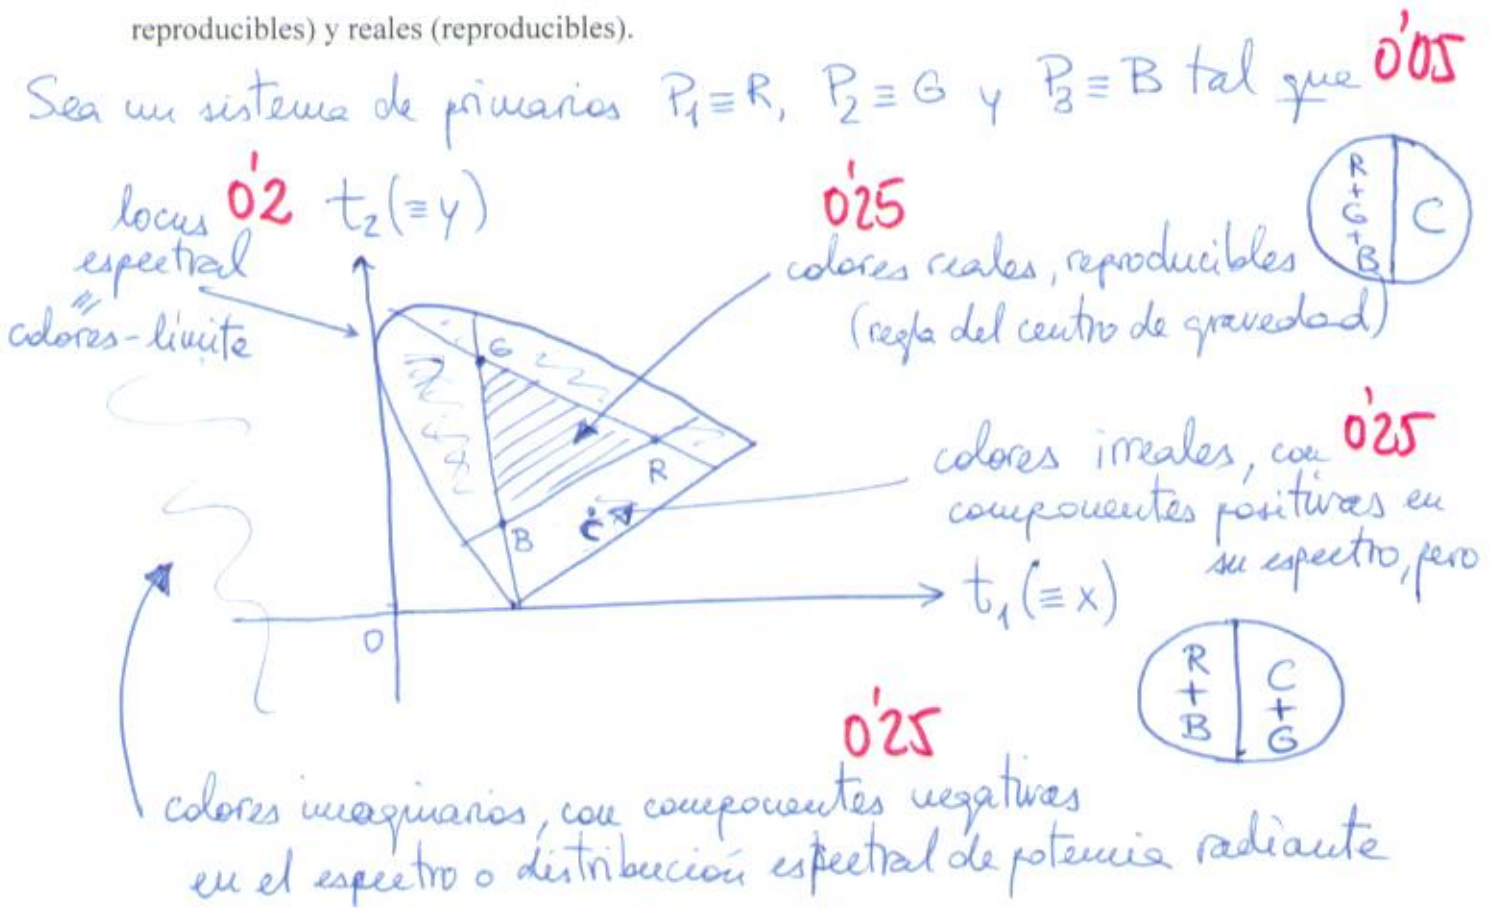 reproducibles) y reales (reproducibles).
Sea un sistema de primarios P₁≡R, P₂≡G y P₃≡B tal que 0'05
locus 0'2
espectral
=
colores-límite
t₂(≡y)
0'25
colores reales, reproducibles
(regla del centro de gravedad)
R
+
G
+
B
C
G
R
B
C
0
t₁(≡x)
colores irreales, con 0'25
componentes positivas en
su espectro, pero
R
+
B
C
+
G
0'25
colores imaginarios, con componentes negativas
en el espectro o distribución espectral de potencia radiante